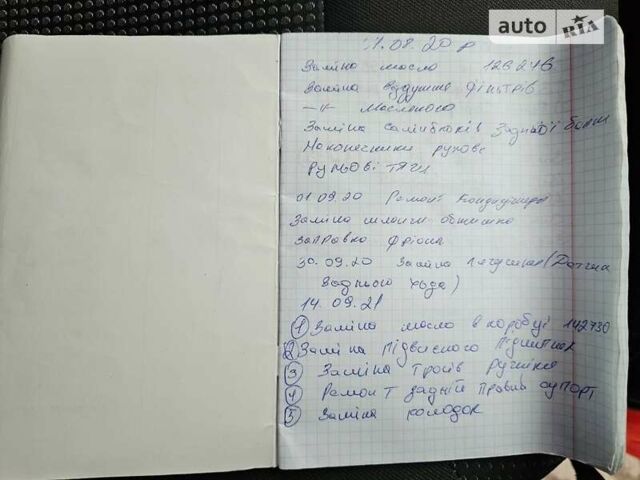 auto RIA
1.08.20 р
Заміна масло 128248
Заміна воздушних фільтрів
—//— Масленого
Заміна салінблоків Задньої балки
Наконечники рулове
Рульові тяги
01.09.20 Ремонт Кондиціонера
Заміна шланги обшивка
Заправка фріона
30.09.20 Заміна (Датчик
Заднього хода)
14.09.21
① Заміна масло в коробці 142730
② Заміна підвісного підшипник
③ Заміна тросів ручніка
④ Ремонт задній правий супорт
⑤ Заміна колодок